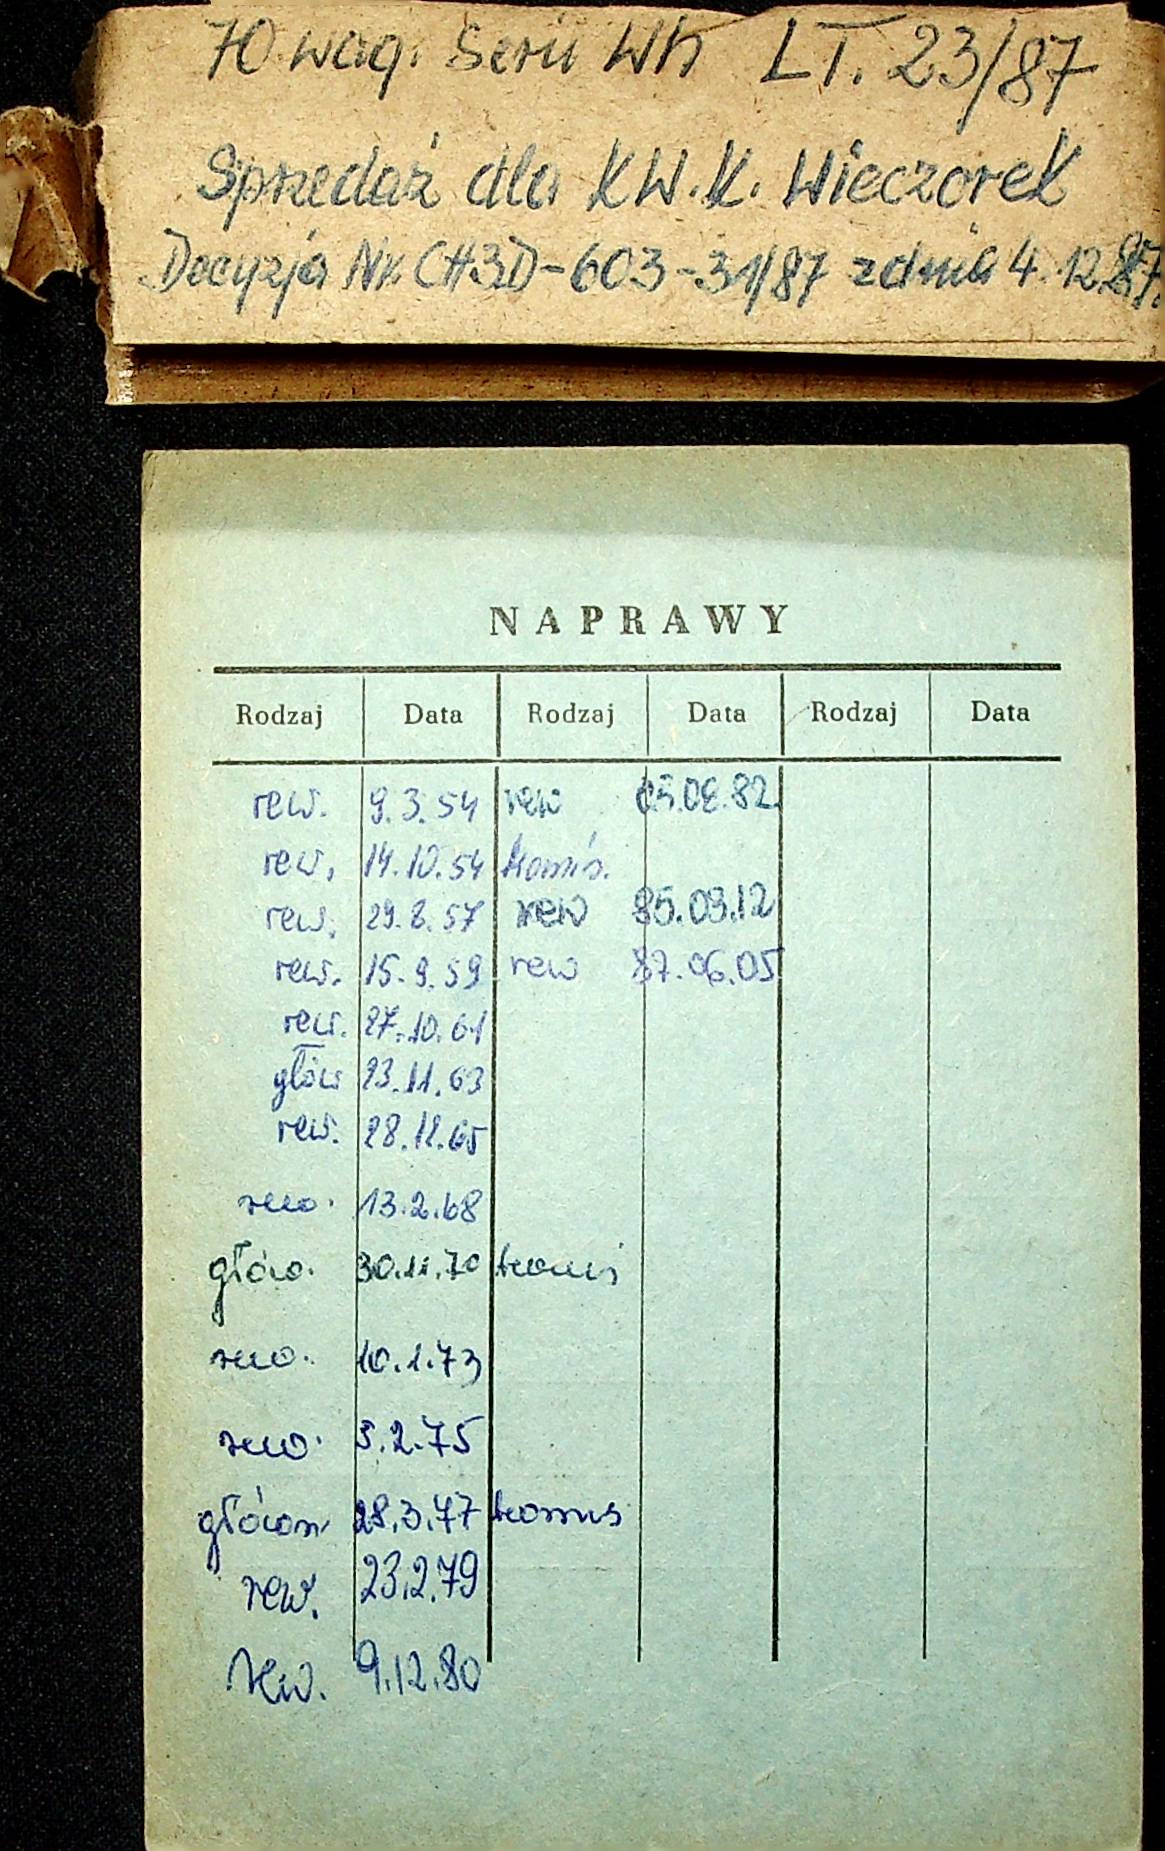 70 wag. Serii Wh LT. 23/87
Sprzedaż dla KW.K. Wieczorek
Decyzja Nr. CH3D-603-31/87 z dnia 4.12.87.
NAPRAWY
Rodzaj Data Rodzaj Data Rodzaj Data
rew. 9.3.54 rew 05.08.82
rew. 14.10.54 komis.
rew. 29.8.57 rew 85.09.12
rew. 15.9.59 rew 87.06.05
rew. 27.10.61
głów 23.11.63
rew. 28.12.65
rew. 13.2.68
głów. 30.11.70 komis
rew. 10.1.73
rew. 3.2.75
główn. 28.3.77 komis
rew. 23.2.79
rew. 9.12.80